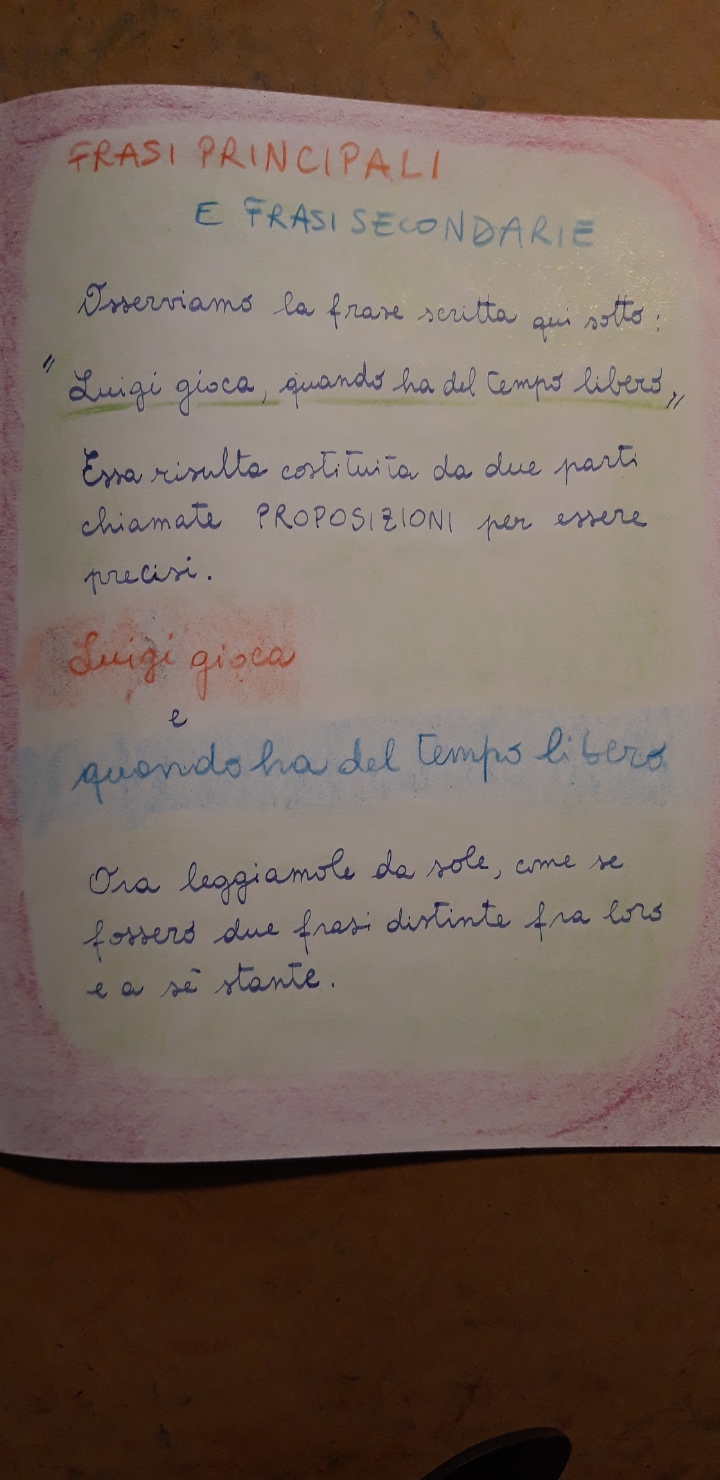 FRASI PRINCIPALI
E FRASI SECONDARIE
Osserviamo la frase scritta qui sotto:
"Luigi gioca, quando ha del tempo libero"
Essa risulta costituita da due parti
chiamate PROPOSIZIONI per essere
precisi.
Luigi gioca
e
quando ha del tempo libero
Ora leggiamole da sole, come se
fossero due frasi distinte fra loro
e a sè stante.